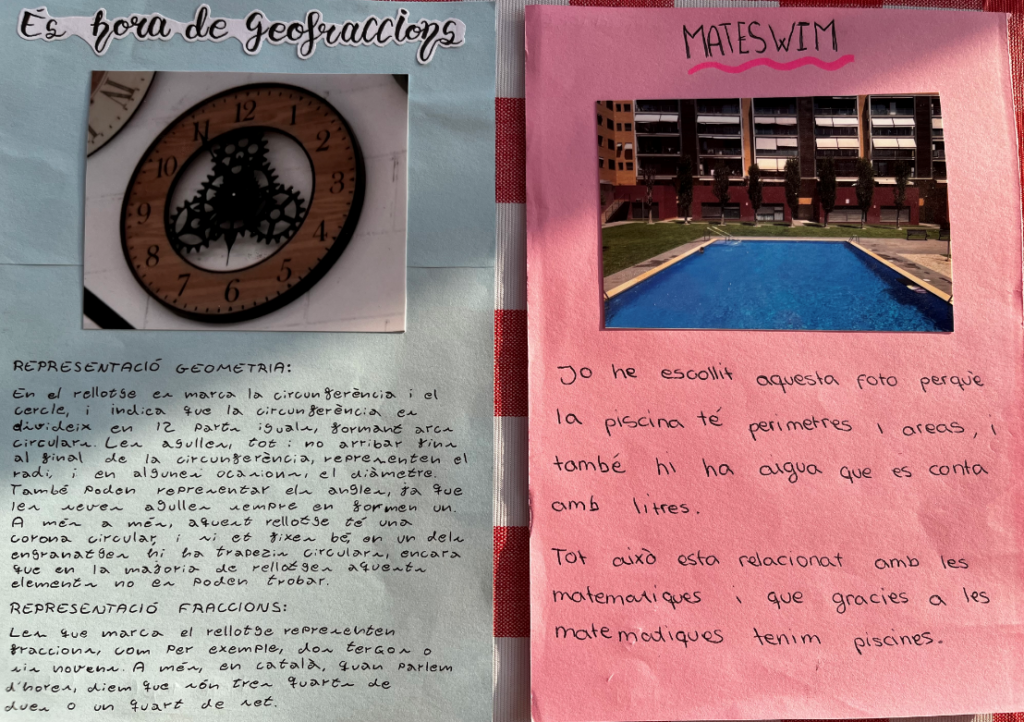 És hora de Geofraccions
12
11
1
10
2
9
3
8
4
7
5
6
REPRESENTACIÓ GEOMETRIA:
En el rellotge es marca la circunferència i el
cercle, i indica que la circunferència es
divideix en 12 parts iguals, formant arcs
circulars. Les agulles, tot i no arribar fins
al final de la circunferència, representen el
radi, i en algunes ocasions, el diàmetre.
També poden representar els angles, ja que
les seves agulles sempre en formen un.
A més a més, aquest rellotge té una
corona circular, i si et fixes bé, en un dels
engranatges hi ha trapezis circulars, encara
que en la majoria de rellotges aquests
elements no es poden trobar.
REPRESENTACIÓ FRACCIONS:
Les que marca el rellotge representen
fraccions, com per exemple, dos terços o
sis novens. A més, en català, quan parlem
d'hores, diem que són tres quarts de
dues o un quart de set.
MATESWIM
Jo he escollit aquesta foto perquè
la piscina té perimetres i areas, i
també hi ha aigua que es conta
amb litres.
Tot això esta relacionat amb les
matematiques i que gracies a les
matematiques tenim piscines.